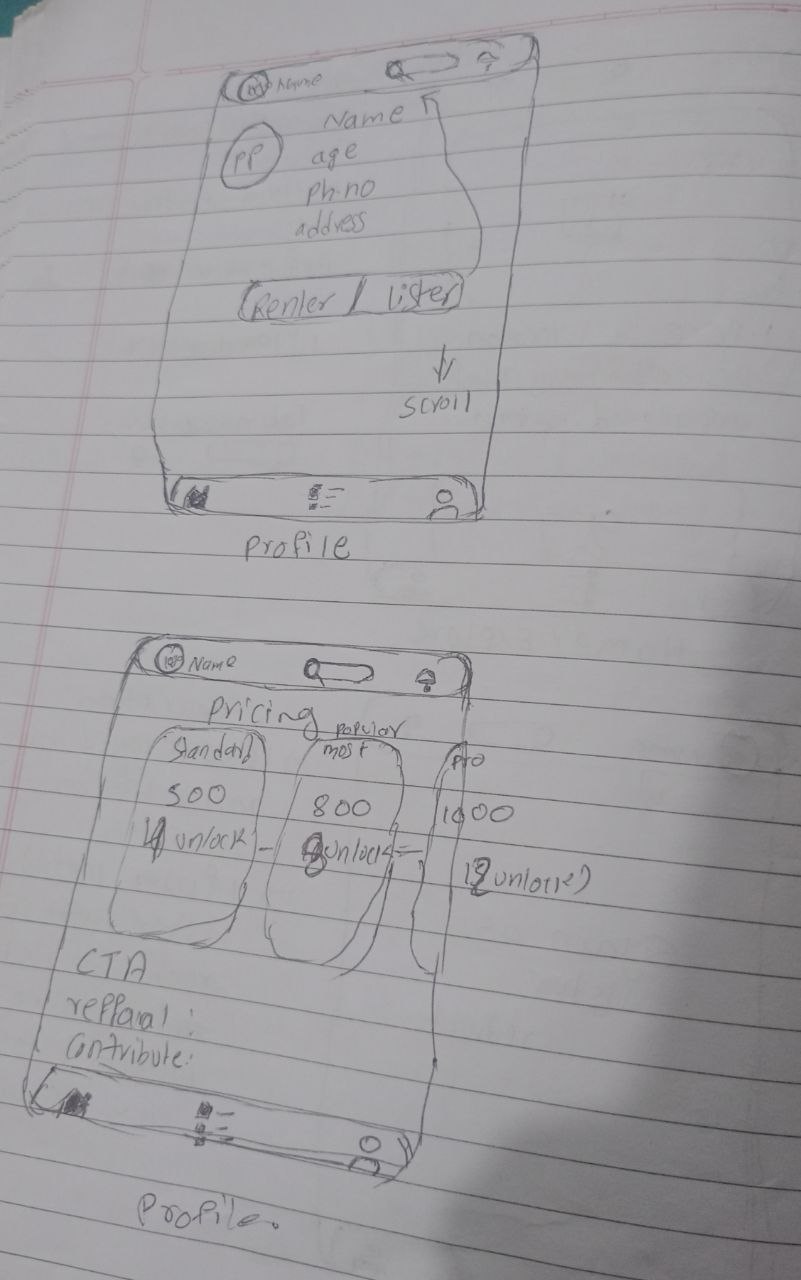 Name
Name
PP
age
Ph.no
address
Renter / Lister
scroll
Profile
Name
Pricing
Standard
500
4 unlock
popular
most
800
8 unlock
Pro
1000
unlock
CTA
refferal :
Contribute:
Profile.